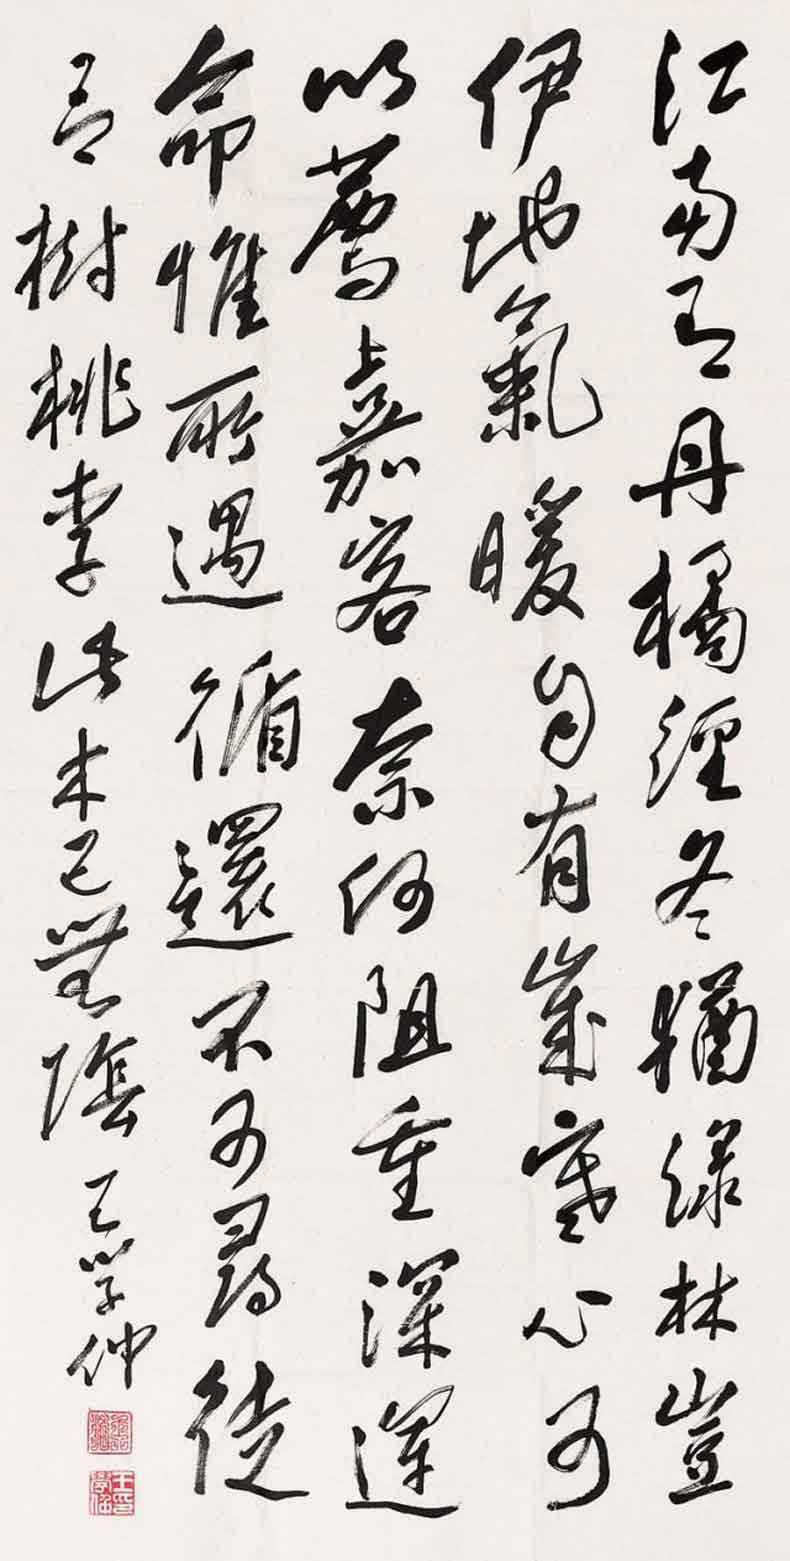 江南有丹橘經冬猶綠林豈
伊地氣暖自有歲寒心可
以薦嘉客奈何阻重深運
命惟所遇循還不可尋徒
言樹桃李此木已無陰 王學仲